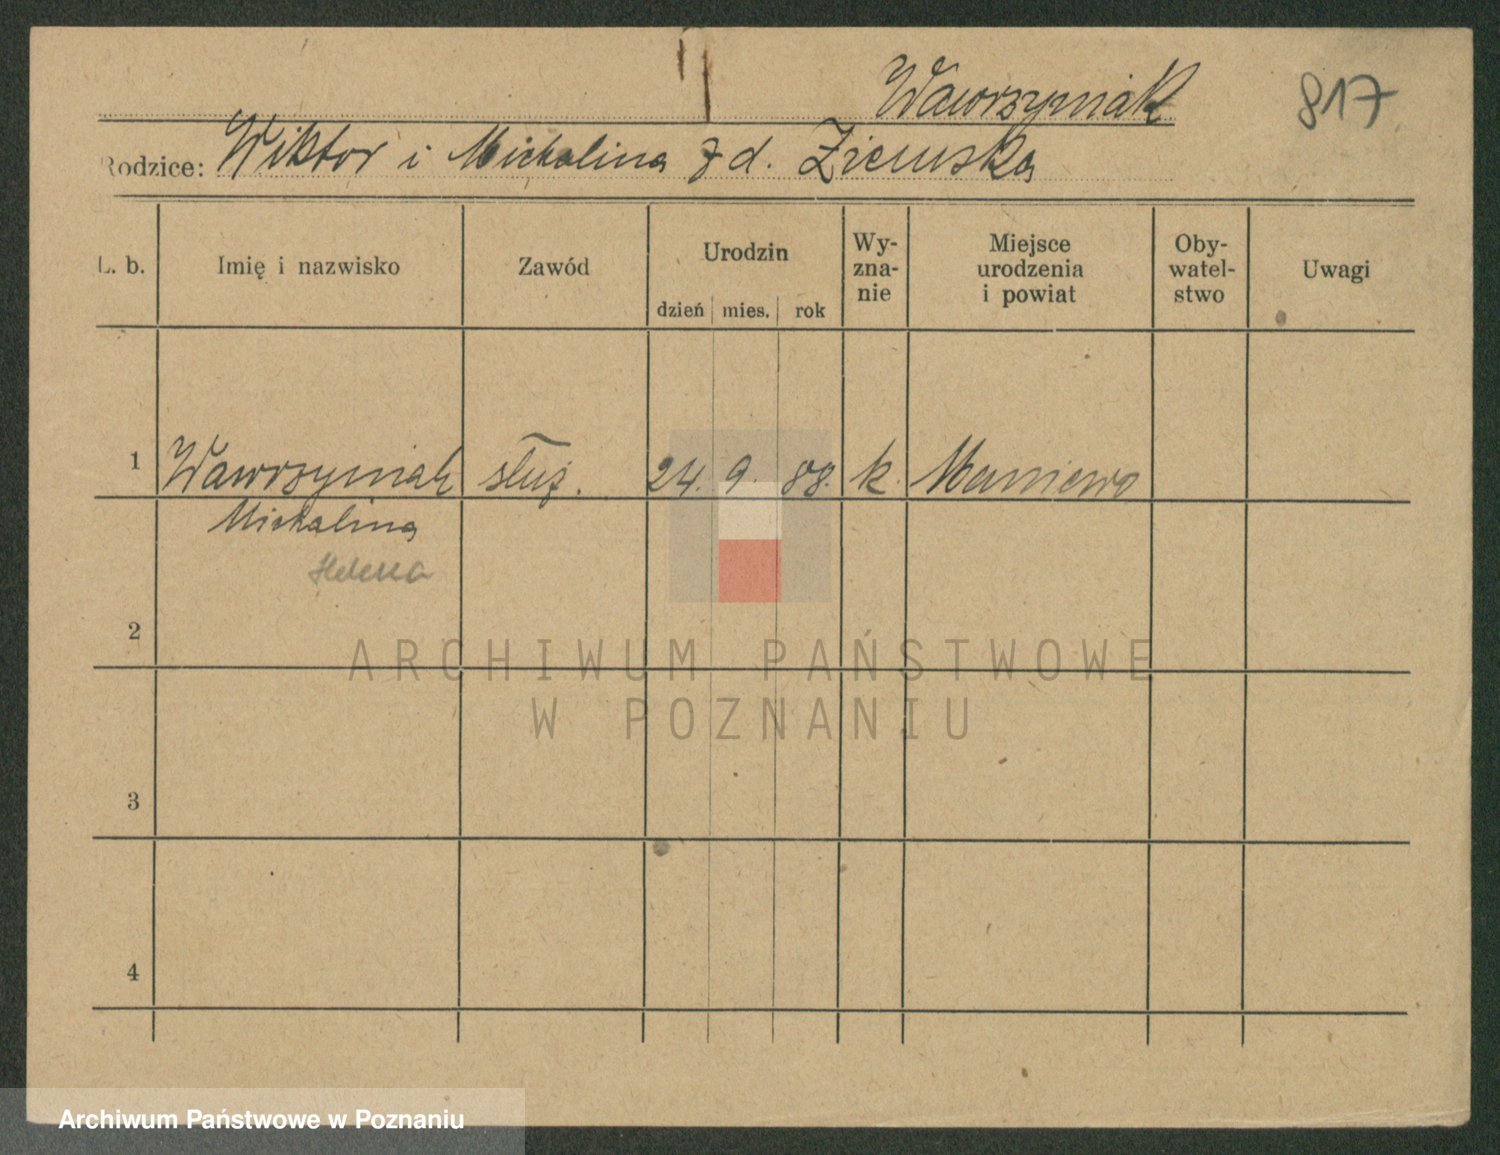 Wawrzyniak
817
Rodzice: Wiktor i Michalina z d. Ziemska
L. b.
Imię i nazwisko
Zawód
Urodzin
dzień mies. rok
Wy-
zna-
nie
Miejsce
urodzenia
i powiat
Oby-
watel-
stwo
Uwagi
1 Wawrzyniak służ. 24. 9. 88. k. Maniewo
Michalina
Helena
2
3
4
ARCHIWUM PAŃSTWOWE
W POZNANIU
Archiwum Państwowe w Poznaniu